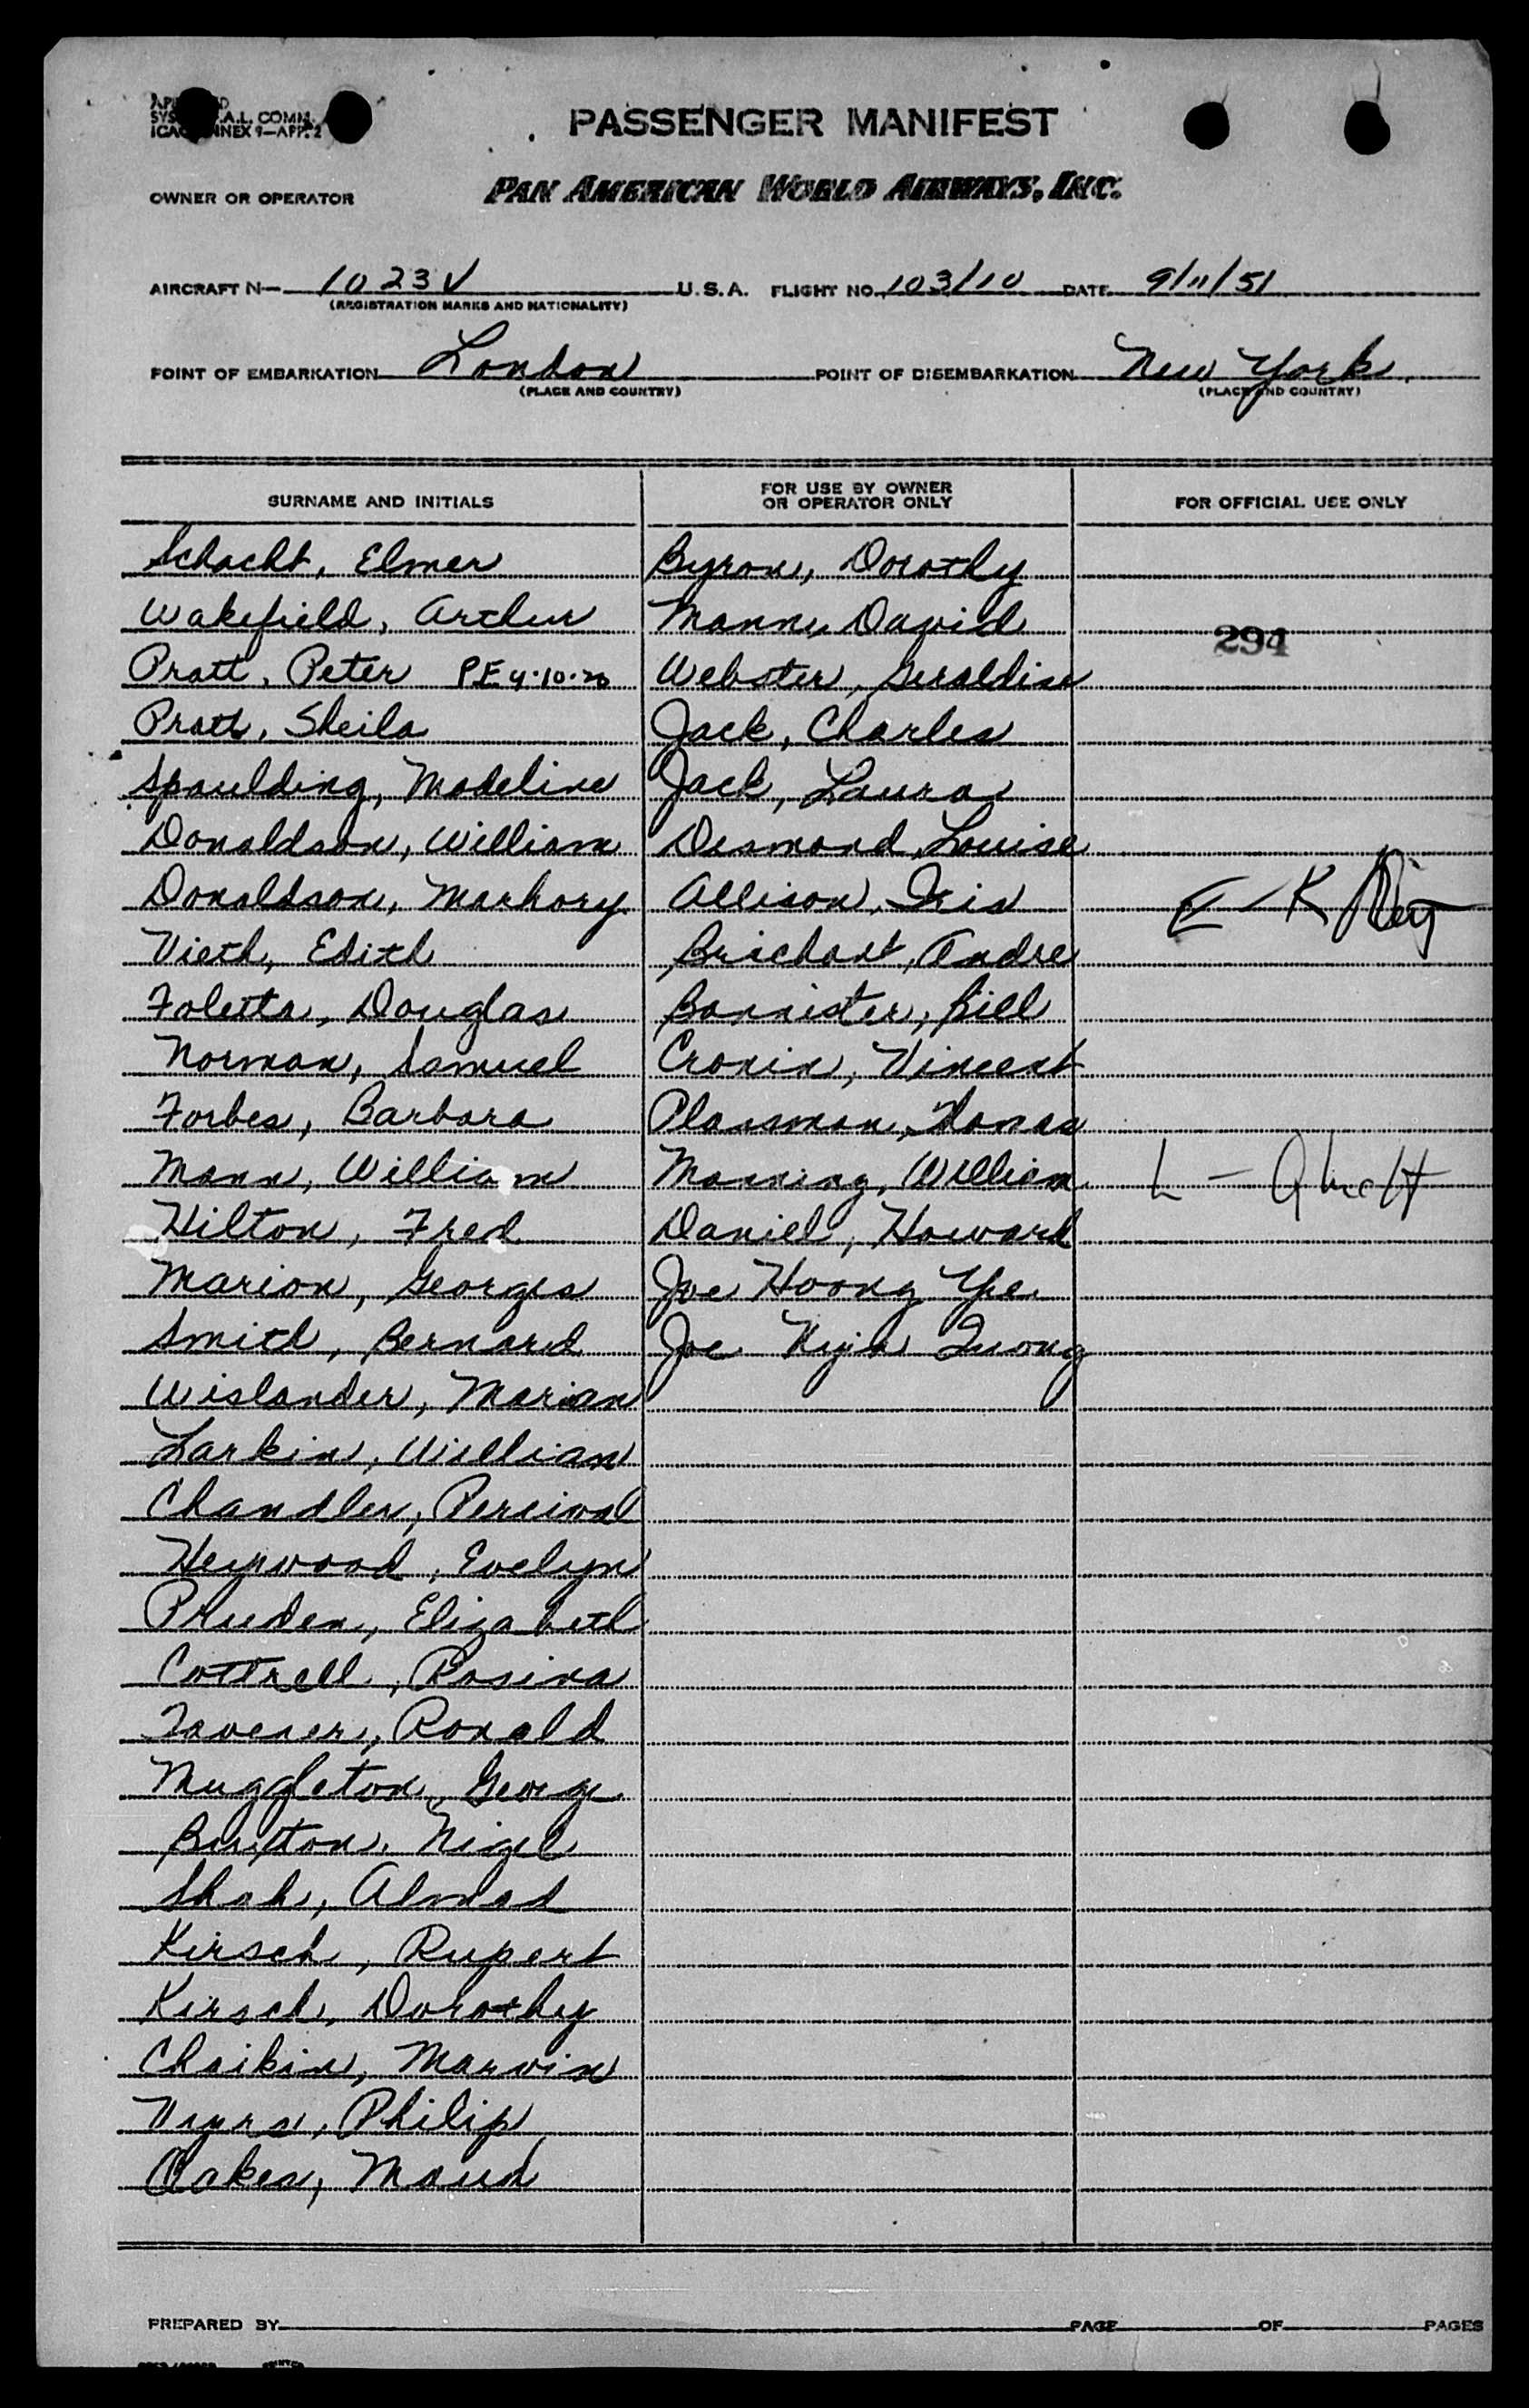 PASSENGER MANIFEST
A.L. COMM.
ICAO ANNEX 9—APP. 2
OWNER OR OPERATOR PAN AMERICAN WORLD AIRWAYS, INC.
AIRCRAFT N— 1023V U.S.A. FLIGHT NO. 103/10 DATE 9/11/51
(REGISTRATION MARKS AND NATIONALITY)
POINT OF EMBARKATION London POINT OF DISEMBARKATION New York.
(PLACE AND COUNTRY) (PLACE AND COUNTRY)
SURNAME AND INITIALS FOR USE BY OWNER OR OPERATOR ONLY FOR OFFICIAL USE ONLY
Schacht, Elmer Byron, Dorothy
Wakefield, Arthur Mann, David
294
Pratt, Peter P.E 4.10.20 Webster, Geraldine
Pratt, Sheila Jack, Charles
Spaulding, Madeline Jack, Laura
Donaldson, William Desmond, Louise
Donaldson, Markory Allison, Iris
Vieth, Edith Brichant, Andre
Foletta, Douglas Bannister, Bill
Norman, Samuel Cronin, Vincent
Forbes, Barbara Plassman,
Mann, William Manning, William
Hilton, Fred Daniel, Howard
Marion, Georges Joe Hoong Yee
Smith, Bernard Joe Quong
Wislander, Marian
Larkin, William
Chandler, Percival
Heywood, Evelyn
Pruden, Elizabeth
Cottrell, Rosina
Tavener, Ronald
Muggleton, George
Buxton, Nigel
Shah, Ahmad
Kirsch, Rupert
Kirsch, Dorothy
Chaikin, Marvin
Philip
Oakes, Maud
PREPARED BY PAGE OF PAGES